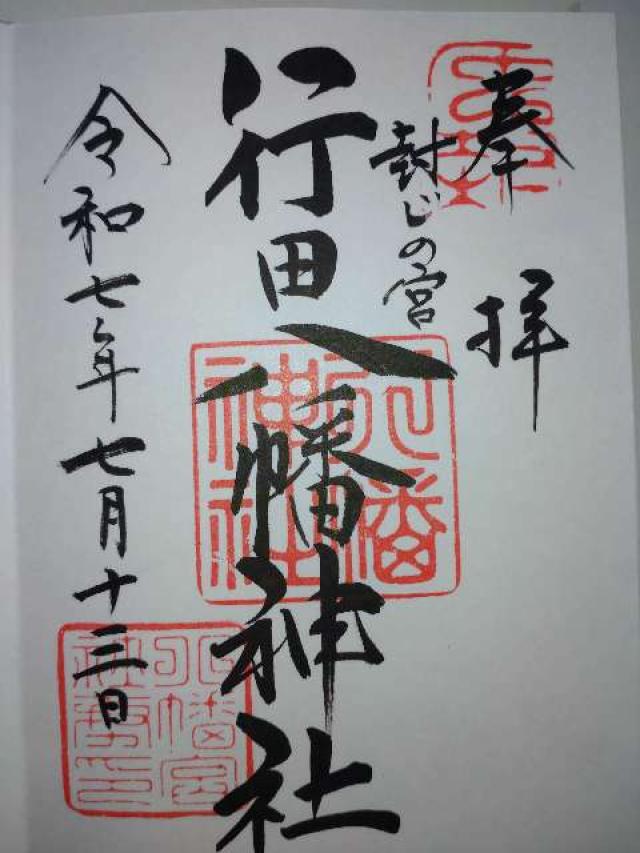 奉拝
封じの宮
行田八幡神社
令和七年七月十三日
八幡神社